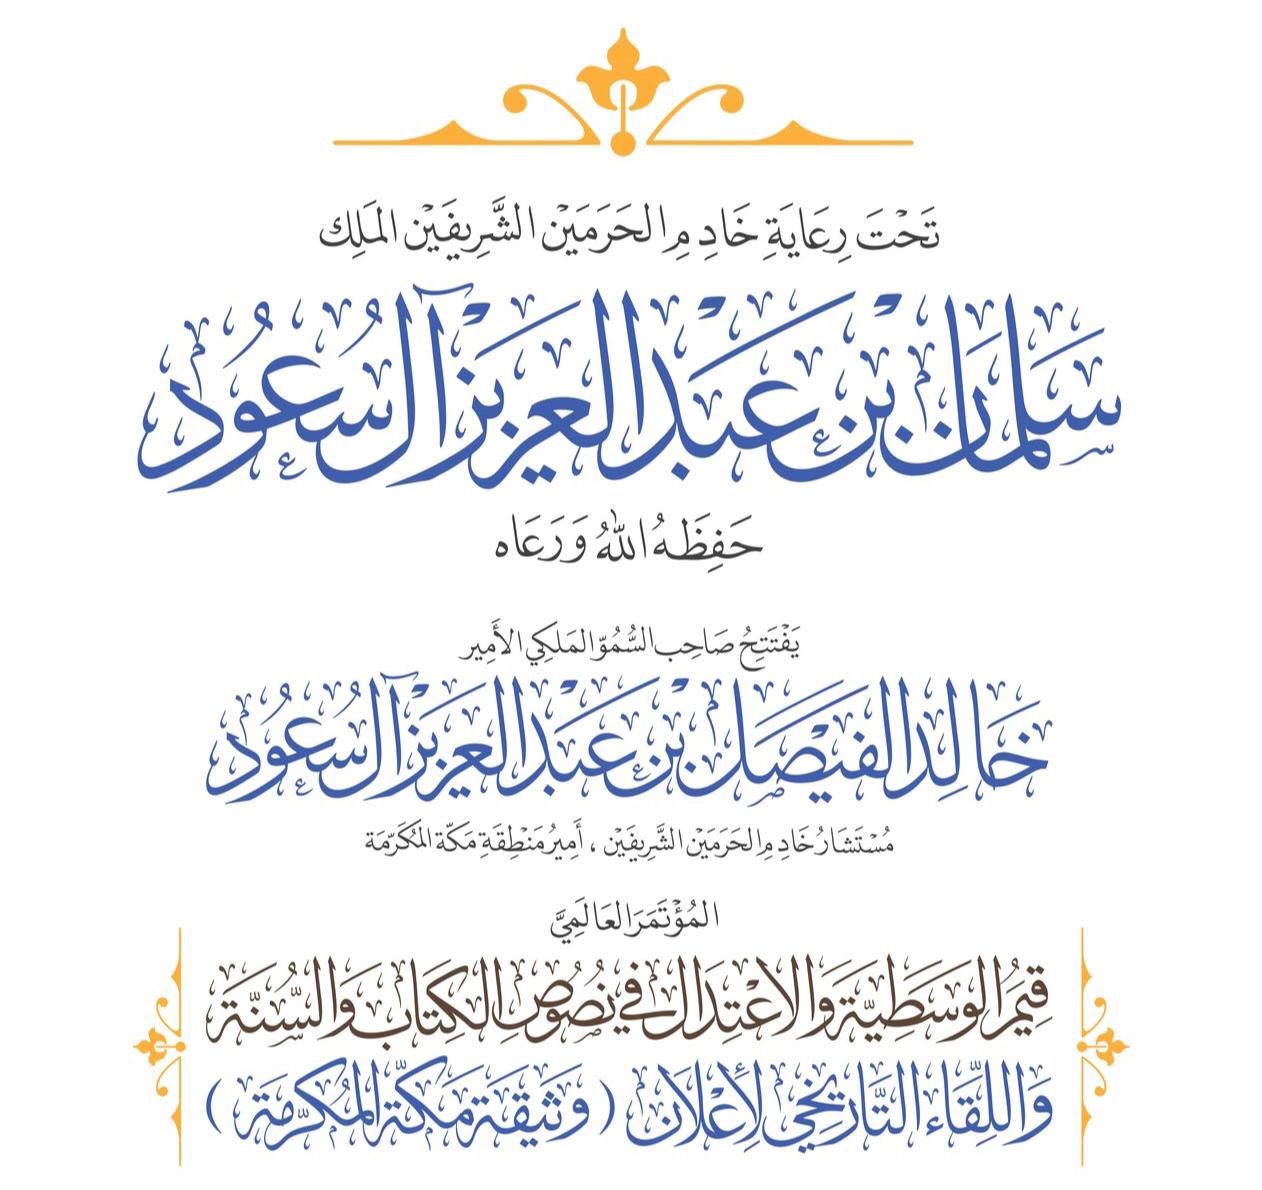 تَحْتَ رِعَايَةِ خَادِمِ الحَرَمَيْن الشَّرِيفَيْن المَلِك
سَلمان بْن عَبْدالعَزيز آل سُعُود
حَفِظَهُ اللهُ وَرَعَاه
يَفْتَتِحُ صَاحِب السُّمُوّ المَلَكِي الأَمِير
خَالِد الفَيْصَل بْن عَبْدالعَزيز آل سُعُود
مُسْتَشَارُ خَادِمِ الحَرَمَيْن الشَّرِيفَيْن ، أَمِيرُ مَنْطِقَةِ مَكّة المُكَرّمَة
المُؤْتَمَرَ العَالَمِيَّ
قِيَمُ الوَسَطِيَّة وَالاعْتِدَال في نصُوصِ الكِتَاب وَالسُّنَّة
وَاللِّقَاء التَّارِيخي لِإعْلَان ( وَثيقَة مَكَّة المُكَرَّمَة )